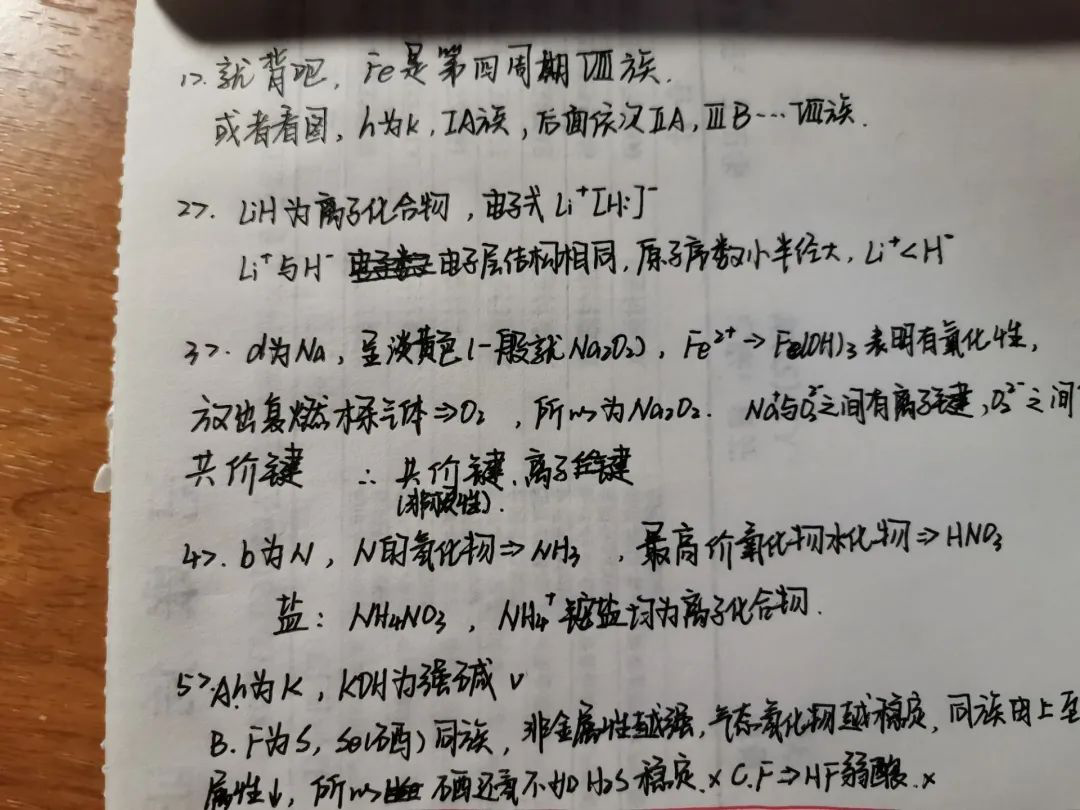 1>. 就背吧, Fe是第四周期Ⅷ族.
或者看图, h为K, ⅠA族, 后面依次ⅡA, ⅢB…Ⅷ族.
2>. LiH为离子化合物, 电子式 Li⁺[H:]⁻
Li⁺与H⁻ 电子层结构相同, 原子序数小半径大, Li⁺<H⁻
3>. d为Na, 呈淡黄色(一般就Na₂O₂), Fe²⁺→Fe(OH)₃表明有氧化性,
放出复燃木条气体⇒O₂, 所以为Na₂O₂. Na⁺与O₂²⁻之间有离子键, O₂²⁻之间
共价键 ∴共价键、离子键
(非极性).
4>. b为N, N的氢化物⇒NH₃, 最高价氧化物水化物⇒HNO₃
盐: NH₄NO₃, NH₄⁺铵盐均为离子化合物.
5>. A. h为K, KOH为强碱 √
B. F为S, Se(硒)同族, 非金属性越强, 气态氢化物越稳定, 同族由上至
属性↓, 所以 硒还氢不如H₂S稳定. × C. F⇒HF弱酸. ×